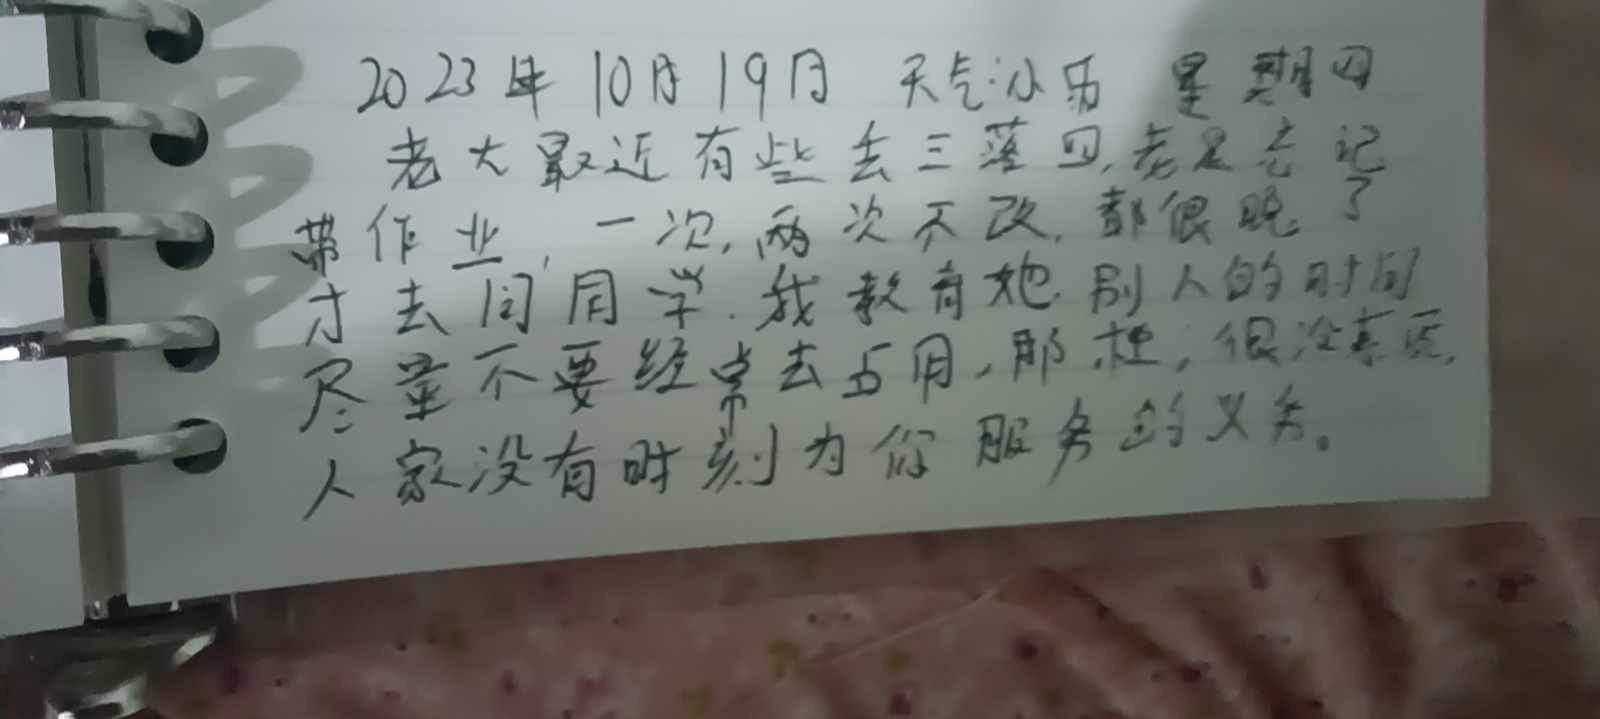 2023年10月19日 天气:小雨 星期四
老大最近有些丢三落四,老是忘记
带作业,一次,两次不改,都很晚了
才去问同学.我教育她.别人的时间
尽量不要经常去占用,那样,很没素质,
人家没有时刻为你服务的义务。